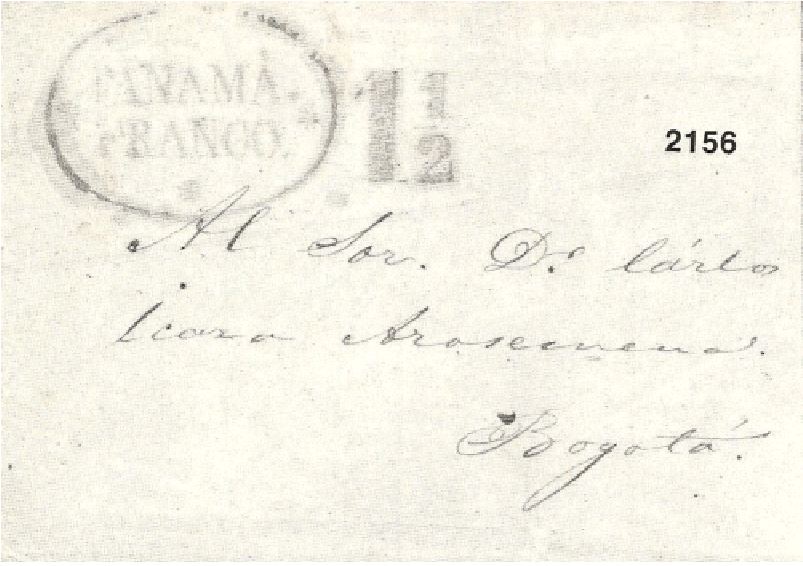 PANAMÁ.
FRANCO.
1 1/2
2156
Al Sor. Dr. Cárlos
Icaza Arosemena.
Bogotá.